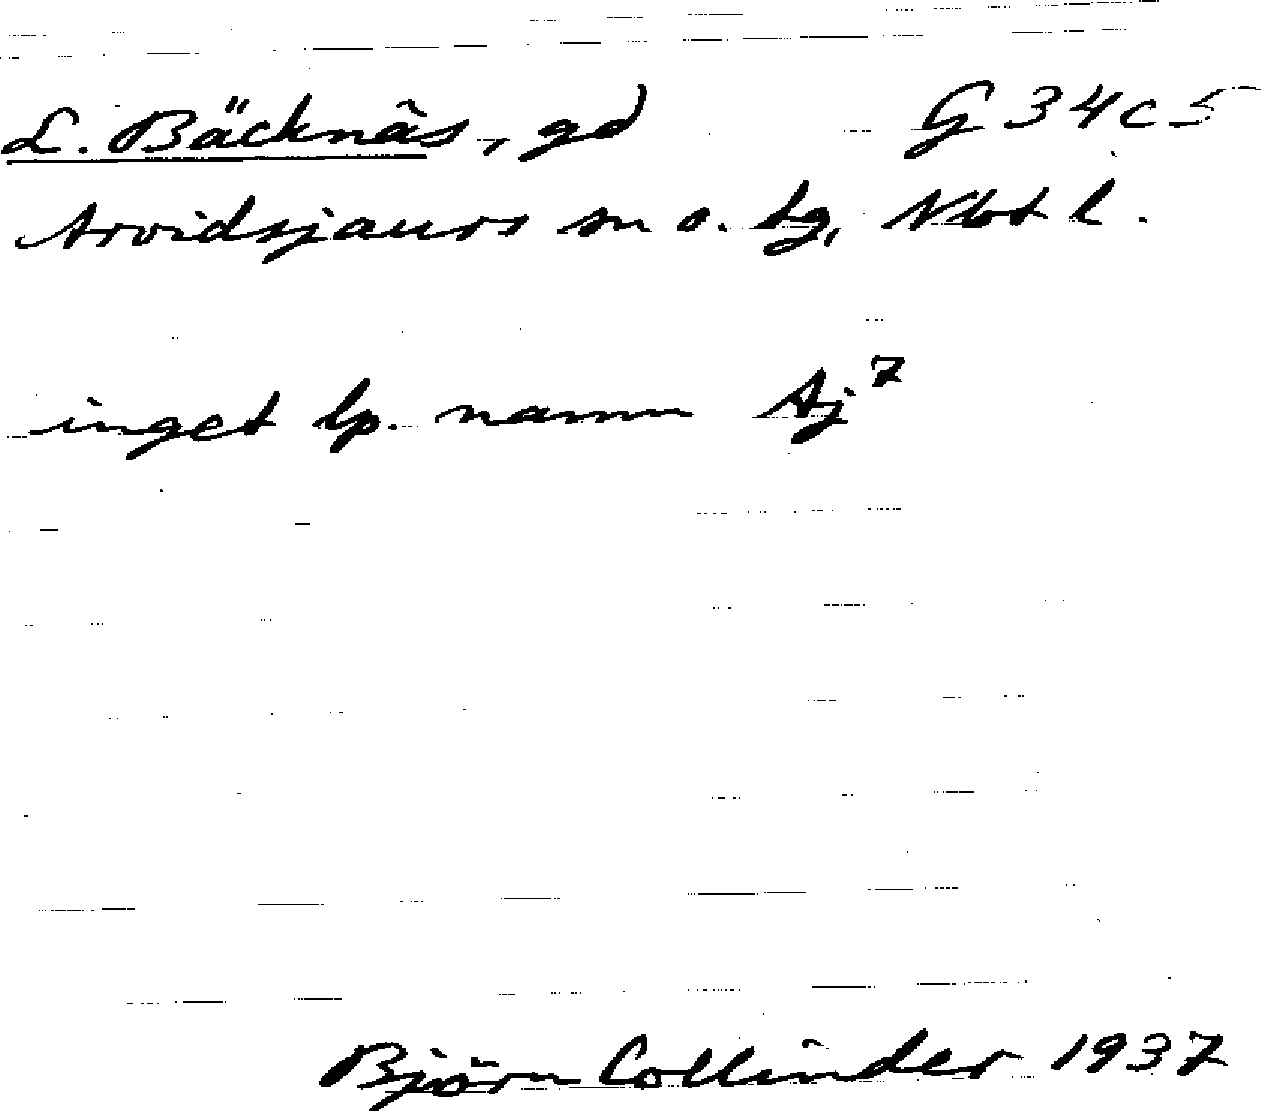 L. Bäcknäs, gd G 34 c 5
Arvidsjaurs sn o. tg, Nbt l.
inget lp. namn Aj 7
Björn Collinder 1937